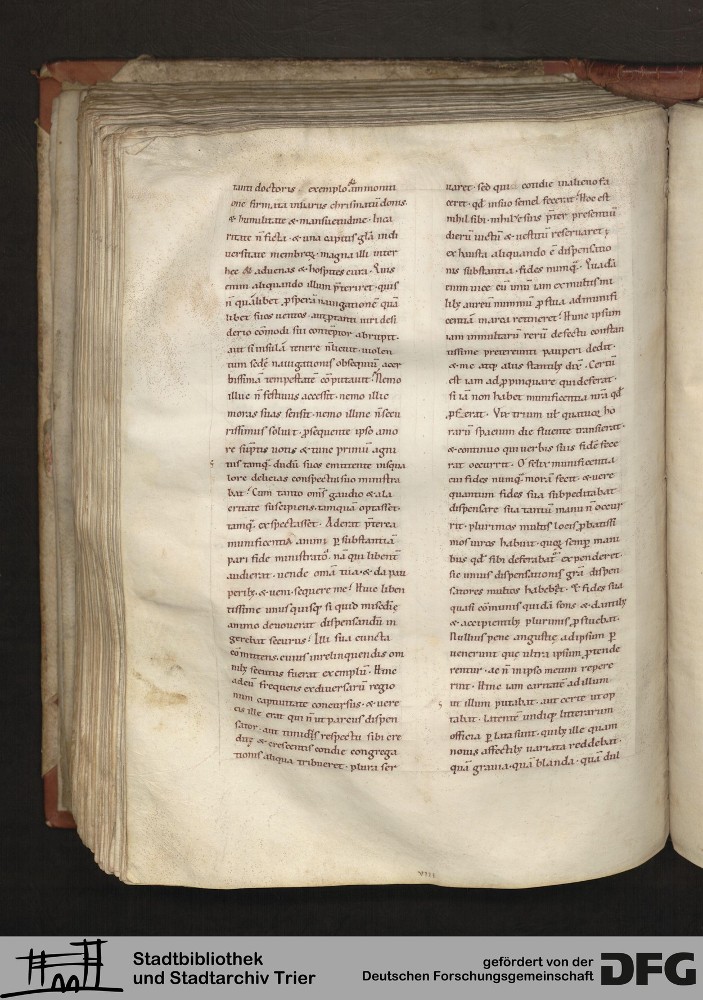 tanti doctoris exemplo ammoniti
one firmata uidurus chrismatū donis.
& humilitate & mansuetudine. In ca
ritate n̄ ficta. & una capitis gl̄a indi
uersitate membroꝝ. magna illi inter
hec & aduenas & hospites cura. Quis
enim aliquando illum p̄teriret. quis
n̄ quālibet ꝓsperā nauigationē quā
libet suos uentos. aut optanti uiri desi
derio cōmodi sui contēptor abrupit.
aut si insulā tenere n̄ licuit. uiolen
tum sedē nauigationis obsequiū acer
bissimā tempestatē cōputauit. Nemo
illuc n̄ festiuus accessit. nemo illic
moras suas sensit. nemo illinc n̄ secu
rissimus soluit. ꝓsequente ipso amo
re sūptis uotis & tunc primū agni
tus tamq̄ dudū suos emittente insqua
lore delicias conspectu suo ministra
bat. Cum tanto om̄s gaudio & ala
critate suscipiens. tamquā optasset.
tamq̄ exspectasset. Aderat p̄terea
munificentia animi ꝑ substantiā
pari fide ministratō. nā qui libent̄
audierat. uende om̄a tua & da pau
perib; & ueni sequere me. Huic liben
tissime unusquisq; si quid misedię
animo deuouerat dispensandū in
gerebat securus. Illi sua cuncta
cōmittens. cuius in relinquendis om
nib; secutus fuerat exemplū. Hinc
adeū frequens ex diuersarū regio
num captiuitate concursus. & uere
cis ille erat qui n̄ ut parcus dispen
sator. aut timidus respectu sibi cre
ditę & crescentis cotidie congrega
tionis aliqua tribueret. plura ser
uaret. sed qui cotidie in alieno fa
ceret. qd̄ in suo semel fecerat. Hoc est
nihil sibi. nihil & suis p̄ter presentiū
dierū uictū & uestitū reseruaret;
exhausta aliquando ē dispensatio
nis substantia. fides numq̄. Quadā
enim uice eū unū iam ex multis mi
lib; aureū nummū ꝓ sua ad munifi
centiā in arca retineret. Hunc ipsum
iam inmultarū rerū defectu constan
tissime pretereunti pauperi dedit.
& me atq; aliis stantib; dix̄. Certū
est iam adꝓpinquare qui deferat.
si iā non habet munificentia n̄ra qd̄
ꝓferat. Vix trium uł quatuor ho
rarū spacium die fluente transierat.
& continuo qui uerbis suis fidē face
rat occurrit. O felix munificentia
cui fides numq̄ morā fecit. & uere
quantum fides sua subpeditabat
dispensare sua tantū manu n̄ occur
rit. plurimos multis locis ꝓbatissi
mos uiros habuit. quoꝝ semp̄ mani
bus qd̄ sibi deferabat expenderet.
sic unius dispensationis gr̄a dispen
satores multos habebat. & fides sua
quasi cōmunis quidā fons & dantib;
& accipientib; plurimis ꝓfluebat.
Nullius pene angustię ad ipsum ꝑ
uenerunt que ultra ipsum ꝓtende
rentur. ac n̄ in ipso metum repere
rint. Hinc iam caritatē ad illum
ut illum putabat. aut certe ut op
tabat. latentē undiq; litterarum
officia ꝑlata sunt. quib; ille quam
nouis affectib; uariata reddebat.
quā grauia. quā blanda. quā dul
VIII
Stadtbibliothek
und Stadtarchiv Trier
gefördert von der
Deutschen Forschungsgemeinschaft
DFG